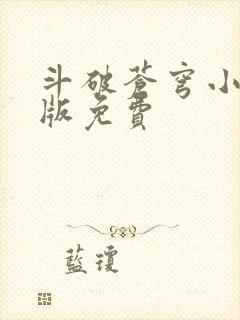 斗破苍穹小
版免費
藍瓊